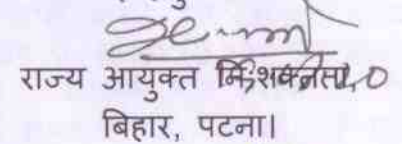 राज्य आयुक्त निःशक्तता
बिहार, पटना।